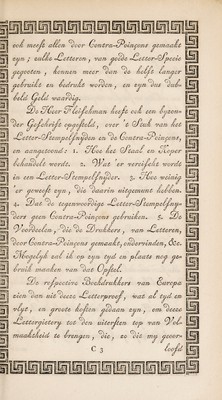 ook meest allen door Contra-Poinçons gemaakt
zyn; zulke Letteren, van goede Letter-Specie
gegooten, konnen meer dan de helft langer
gebruikt en bedrukt worden, en zyn dus dub-
beld Geld waardig.
De Heer Fleischman heeft ook een byzon-
der Geschrift opgesteld, over 't Stuk van het
Letter-Stempelsnyden en de Contra-Poinçons,
en aangetoond: 1. Hoe het Staal en Koper
behandeld wordt. 2. Wat 'er vereischt wordt
in een Letter-Stempelsnyder. 3. Hoe weinig
'er geweest zyn, die daarin uitgemunt hebben.
4. Dat de tegenwoordige Letter-Stempelsny-
ders geen Contra-Poinçons gebruiken. 5. De
Voordeelen, die de Drukkers, van Letteren,
door Contra-Poinçons gemaakt, ondervinden, &c.
Mogelyk zal ik op zyn tyd en plaats nog ge-
bruik maaken van dat Opstel.
De respective Boekdrukkers van Europa
zien dan uit deeze Letterproef, wat al tyd en
vlyt, en groote kosten gedaan zyn, om deeze
Lettergietery tot den uitersten top van Vol-
maaktheid te brengen, die, zo dit my geoor-
C 3
loofd